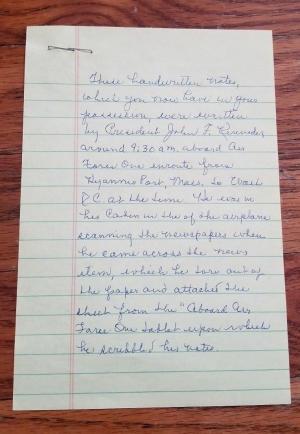 These handwritten notes,
which you now have in your
possession, were written
by President John F. Kennedy
around 9:30 a.m. aboard Air
Force One enroute from
Hyannis Port, Mass, to Wash
D.C. at the time he was in
his Cabin in the of the airplane
scanning the newspapers when
he came across the news
item, which he tore out of
the paper and attached the
sheet from the "Aboard Air
Force One tablet upon which
he scribbled his notes.